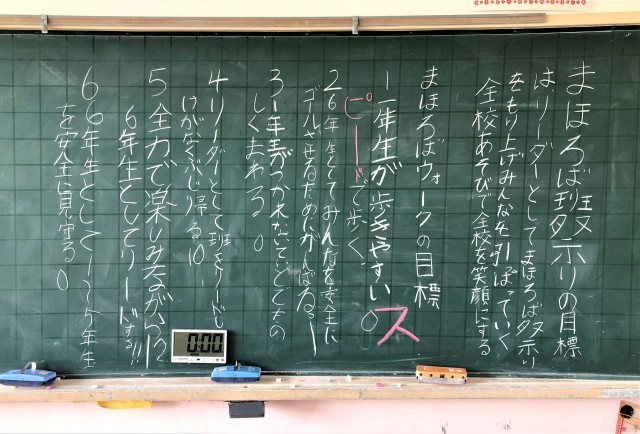 まほろば祭りの目標
はリーダーとしてまほろば祭り
をもり上げみんなを引っぱっていく
全校あそびで全校を笑顔にする
まほろばウォークの目標
1 1年生が歩きやすい 0 ス
ピードで歩く
2 6年生としてみんなを安全に
ゴールさせるためにがんばる。一
3 1年生がつかれないていどでたの
しくまわる 0
4 リーダーとして班をリードし
けがなくぶじ帰る 10
5 全力で楽しみながら 12
6年生としてリードする!!
6 6年生として1〜5年生
を安全に見守る 0
0:00